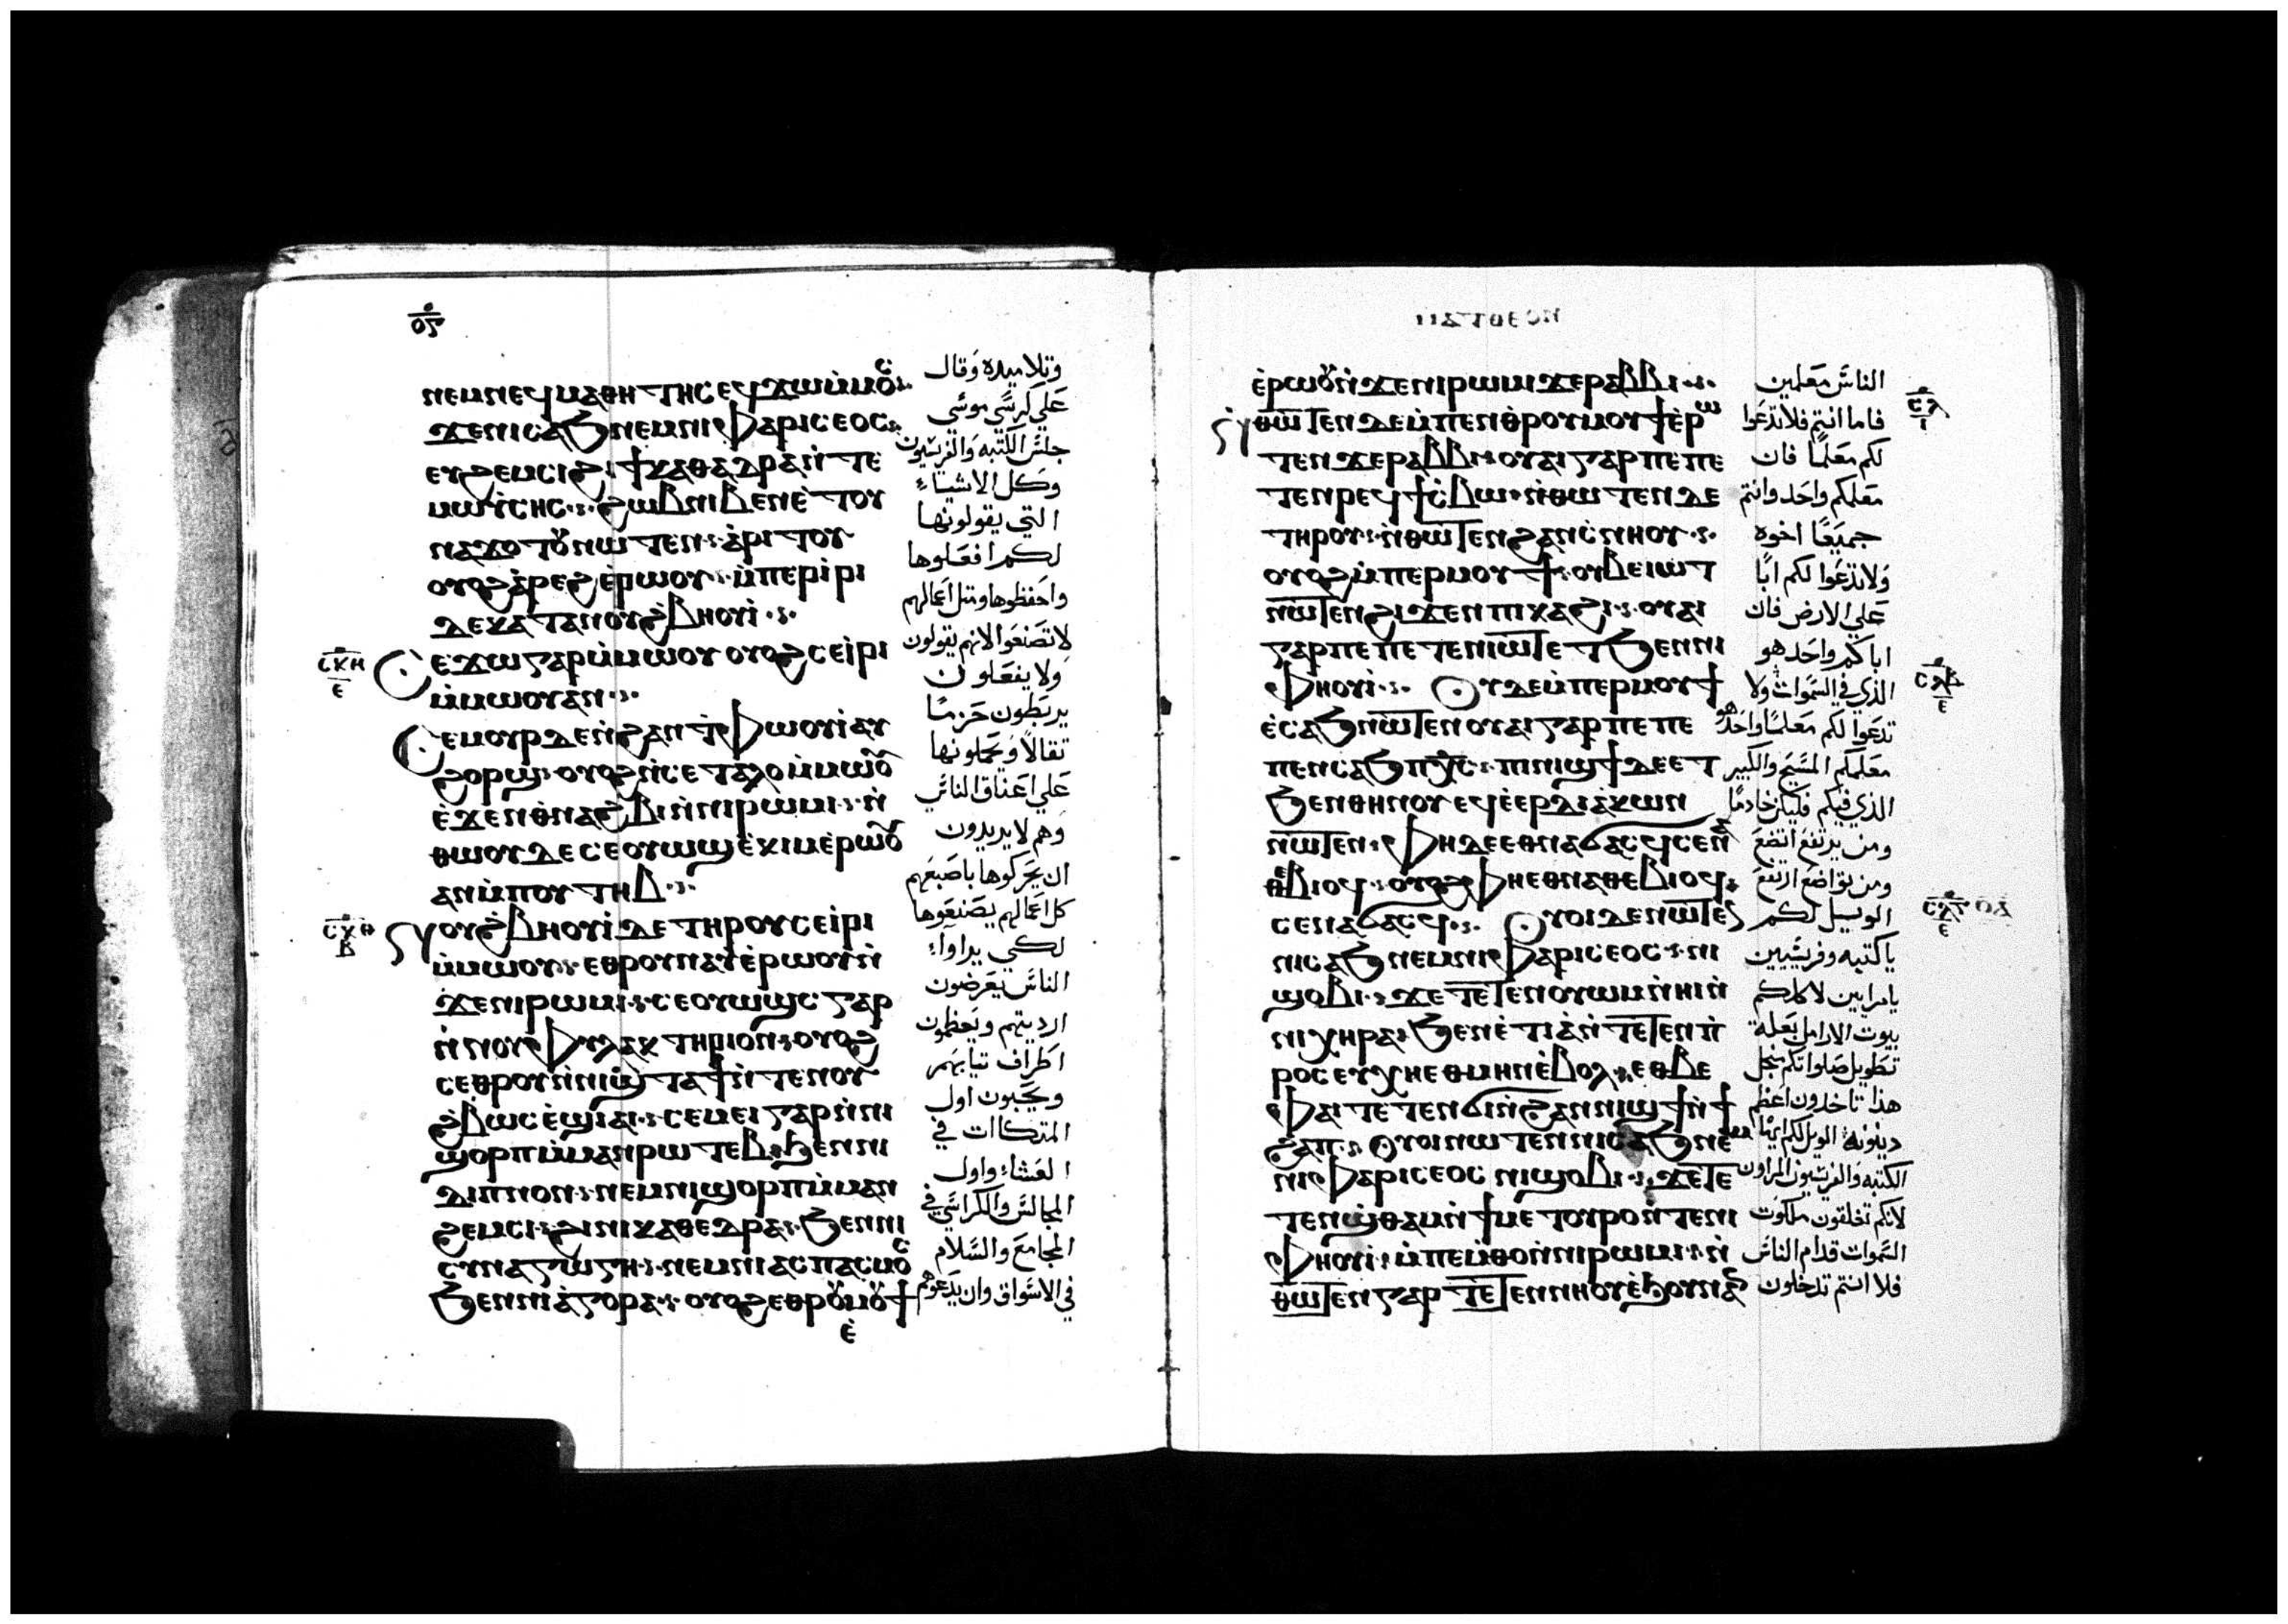 ⲛⲉⲙⲛⲉϥⲙⲁⲑⲏⲧⲏⲥⲉϥϫⲱⲙⲙⲟⲥ
ϫⲉⲛⲓⲥⲁϧⲛⲉⲙⲛⲓⲫⲁⲣⲓⲥⲉⲟⲥ
ⲉⲩϩⲉⲙⲥⲓϩⲓϯⲕⲁⲑⲉⲇⲣⲁⲛⲧⲉ
ⲙⲱⲩⲥⲏⲥ ϩⲱⲃⲛⲓⲃⲉⲛⲉⲧⲟⲩ
ⲛⲁϫⲟⲧⲟⲩⲛⲱⲧⲉⲛ ⲁⲣⲓⲧⲟⲩ
ⲟⲩⲟϩⲁⲣⲉϩⲉⲣⲱⲟⲩ ⲙⲡⲉⲣⲓⲣⲓ
ⲇⲉⲕⲁⲧⲁⲛⲟⲩϩⲃⲏⲟⲩⲓ
ⲥⲉϫⲱⲅⲁⲣⲙⲙⲱⲟⲩ ⲟⲩⲟϩⲥⲉⲓⲣⲓ
ⲙⲙⲱⲟⲩⲁⲛ
ⲥⲉⲙⲟⲩⲣⲇⲉⲛϩⲁⲛⲉⲧⲫⲱⲟⲩⲓⲁⲩ
ϩⲟⲣϣ ⲟⲩⲟϩⲛⲥⲉⲧⲁⲗⲟⲙⲙⲱⲟⲩ
ⲉϫⲉⲛⲑⲛⲁϩⲃⲓⲛⲛⲓⲣⲱⲙⲓ ⲛ
ⲑⲱⲟⲩⲇⲉⲥⲉⲟⲩⲱϣⲉⲕⲓⲙⲉⲣⲱⲟⲩ
ⲁⲛⲙⲡⲟⲩⲧⲏⲃ
ⲛⲟⲩϩⲃⲏⲟⲩⲓⲇⲉⲧⲏⲣⲟⲩⲥⲉⲓⲣⲓ
ⲙⲙⲱⲟⲩ ⲉⲑⲣⲟⲩⲛⲁⲩⲉⲣⲱⲟⲩⲛ
ϫⲉⲛⲓⲣⲱⲙⲓ ⲥⲉⲟⲩⲱϣⲥⲅⲁⲣ
ⲛⲛⲟⲩⲫⲩⲗⲁⲕⲧⲏⲣⲓⲟⲛ ⲟⲩⲟϩ
ⲥⲉⲑⲣⲟⲩⲛⲓϣϯⲛⲧⲉⲛⲟⲩ
ϩⲃⲱⲥⲉϣⲓⲁⲓ ⲥⲉⲙⲉⲓⲅⲁⲣⲛⲛⲓ
ϣⲟⲣⲡⲙⲙⲁⲛⲣⲱⲧⲉⲃ ϧⲉⲛⲛⲓ
ⲇⲓⲡⲛⲟⲛ ⲛⲉⲙⲛⲓϣⲟⲣⲡⲙⲙⲁⲛ
ϩⲉⲙⲥⲓ ϩⲓⲛⲓⲕⲁⲑⲉⲇⲣⲁ ϧⲉⲛⲛⲓ
ⲥⲩⲛⲁⲅⲱⲅⲏ ⲛⲉⲙⲛⲓⲁⲥⲡⲁⲥⲙⲟⲥ
ϧⲉⲛⲛⲓⲁⲅⲟⲣⲁ ⲟⲩⲟϩⲉⲑⲣⲟⲩⲙⲟⲩϯ
ⲉ
وتلاميده وقال
علي كرسي موسى
جلس الكتبه والفريسيون
وكل الاشياء
التي يقولونها
لكم افعلوها
واحفظوها ومثل اعمالهم
لا تصنعوا لانهم يقولون
ولا يفعلون
يربطون حزما
تقالا ويحملونها
علي اعناق الناس
وهم لا يريدون
ان يحركوها باصبعهم
كل اعمالهم يصنعوها
لكي يراوا
الناس يعرضون
ارديتهم ويعظمون
اطراف تيابهم
ويحبون اول
المتكاات في
العشاء واول
المجالس والكراسي في
المجامع والسلام
في الاسواق وان يدعوهم
ⲉⲣⲱⲟⲩⲛϫⲉⲛⲓⲣⲱⲙⲓϫⲉⲣⲁⲃⲃⲓ
ⲛⲑⲱⲧⲉⲛⲇⲉⲙⲡⲉⲛⲑⲣⲟⲩⲙⲟⲩϯⲉⲣⲱ
ⲧⲉⲛϫⲉⲣⲁⲃⲃⲓ ⲟⲩⲁⲓⲅⲁⲣⲡⲉⲡⲉ
ⲧⲉⲛⲣⲉϥϯⲥⲃⲱ ⲛⲑⲱⲧⲉⲛⲇⲉ
ⲧⲏⲣⲟⲩ ⲛⲑⲱⲧⲉⲛϩⲁⲛⲥⲛⲏⲟⲩ
ⲟⲩⲟϩⲙⲡⲉⲣⲙⲟⲩϯ ⲟⲩⲃⲉⲓⲱⲧ
ⲛⲱⲧⲉⲛϩⲓϫⲉⲛⲡⲓⲕⲁϩⲓ ⲟⲩⲁⲓ
ⲅⲁⲣⲡⲉⲡⲉⲧⲉⲛⲓⲱⲧⲉⲧϧⲉⲛⲛⲓ
ⲫⲏⲟⲩⲓ ⲟⲩⲇⲉⲙⲡⲉⲣⲙⲟⲩϯ
ⲉⲥⲁϧⲛⲱⲧⲉⲛⲟⲩⲁⲓⲅⲁⲣⲡⲉⲡⲉ
ⲧⲉⲛⲥⲁϧⲡⲭⲥ ⲡⲓⲛⲓϣϯⲇⲉⲉⲧ
ϧⲉⲛⲑⲏⲛⲟⲩⲉϥⲉⲉⲣⲇⲓⲁⲕⲱⲛ
ⲛⲱⲧⲉⲛ ⲫⲏⲇⲉⲉⲑⲛⲁϭⲁⲥϥⲥⲉⲛⲁ
ⲑⲉⲃⲓⲟϥ ⲟⲩⲟϩⲫⲏⲉⲑⲛⲁⲑⲉⲃⲓⲟϥ
ⲥⲉⲛⲁϭⲁⲥϥ ⲟⲩⲟⲓⲇⲉⲛⲱⲧⲉⲛ
ⲛⲓⲥⲁϧⲛⲉⲙⲛⲓⲫⲁⲣⲓⲥⲉⲟⲥ ⲛⲓ
ϣⲟⲃⲓ ϫⲉⲧⲉⲧⲉⲛⲟⲩⲱⲙⲛⲛⲓⲏⲓⲛ
ⲛⲓⲭⲏⲣⲁ ϧⲉⲛⲉⲧⲓⲁⲛⲧⲉⲧⲉⲛⲡ
ⲣⲟⲥⲉⲩⲭⲏⲉⲑⲙⲏⲛⲉⲃⲟⲗ ⲉⲑⲃⲉ
ⲫⲁⲓⲧⲉⲧⲉⲛϭⲓⲛϩⲁⲛⲛⲓϣϯⲛ
ϩⲁⲡ ⲟⲩⲟⲓⲛⲱⲧⲉⲛⲛⲓⲥⲁϧⲛⲉⲙ
ⲛⲓⲫⲁⲣⲓⲥⲉⲟⲥ ⲛⲓϣⲟⲃⲓ ϫⲉⲧⲉ
ⲧⲉⲛϣⲑⲁⲙⲛϯⲙⲉⲧⲟⲩⲣⲟⲛⲧⲉⲛⲓ
ⲫⲏⲟⲩⲓ ⲙⲡⲉⲙⲑⲟⲛⲛⲓⲣⲱⲙⲓ ⲛ
ⲑⲱⲧⲉⲛⲅⲁⲣⲧⲉⲧⲉⲛⲛⲏⲟⲩⲉϧⲟⲩⲛⲁⲛ
الناس معلمين
فاما انتم فلا تدعوا
لكم معلما فان
معلمكم واحد وانتم
جميعا اخوه
ولا تدعوا لكم ابا
علي الارض فان
اباكم واحد هو
الذي في السموات ولا
تدعوا لكم معلما واحد هو
معلمكم المسيح والكبير
الذي فيكم فليكن خادما
ومن يرتفع اتضع
ومن تواضع ارتفع
الويل لكم
يا كتبه وفريسيين
يا مرايين لاكلكم
بيوت الارامل بعلة
تطويل صلواتكم بنجل
هذا تاخدون اعظم
دينونة الويل لكم ايها
الكتبه والفريسيون المراون
لانكم تغلقون ملكوت
السموات قدام الناس
فلا انتم تدخلون